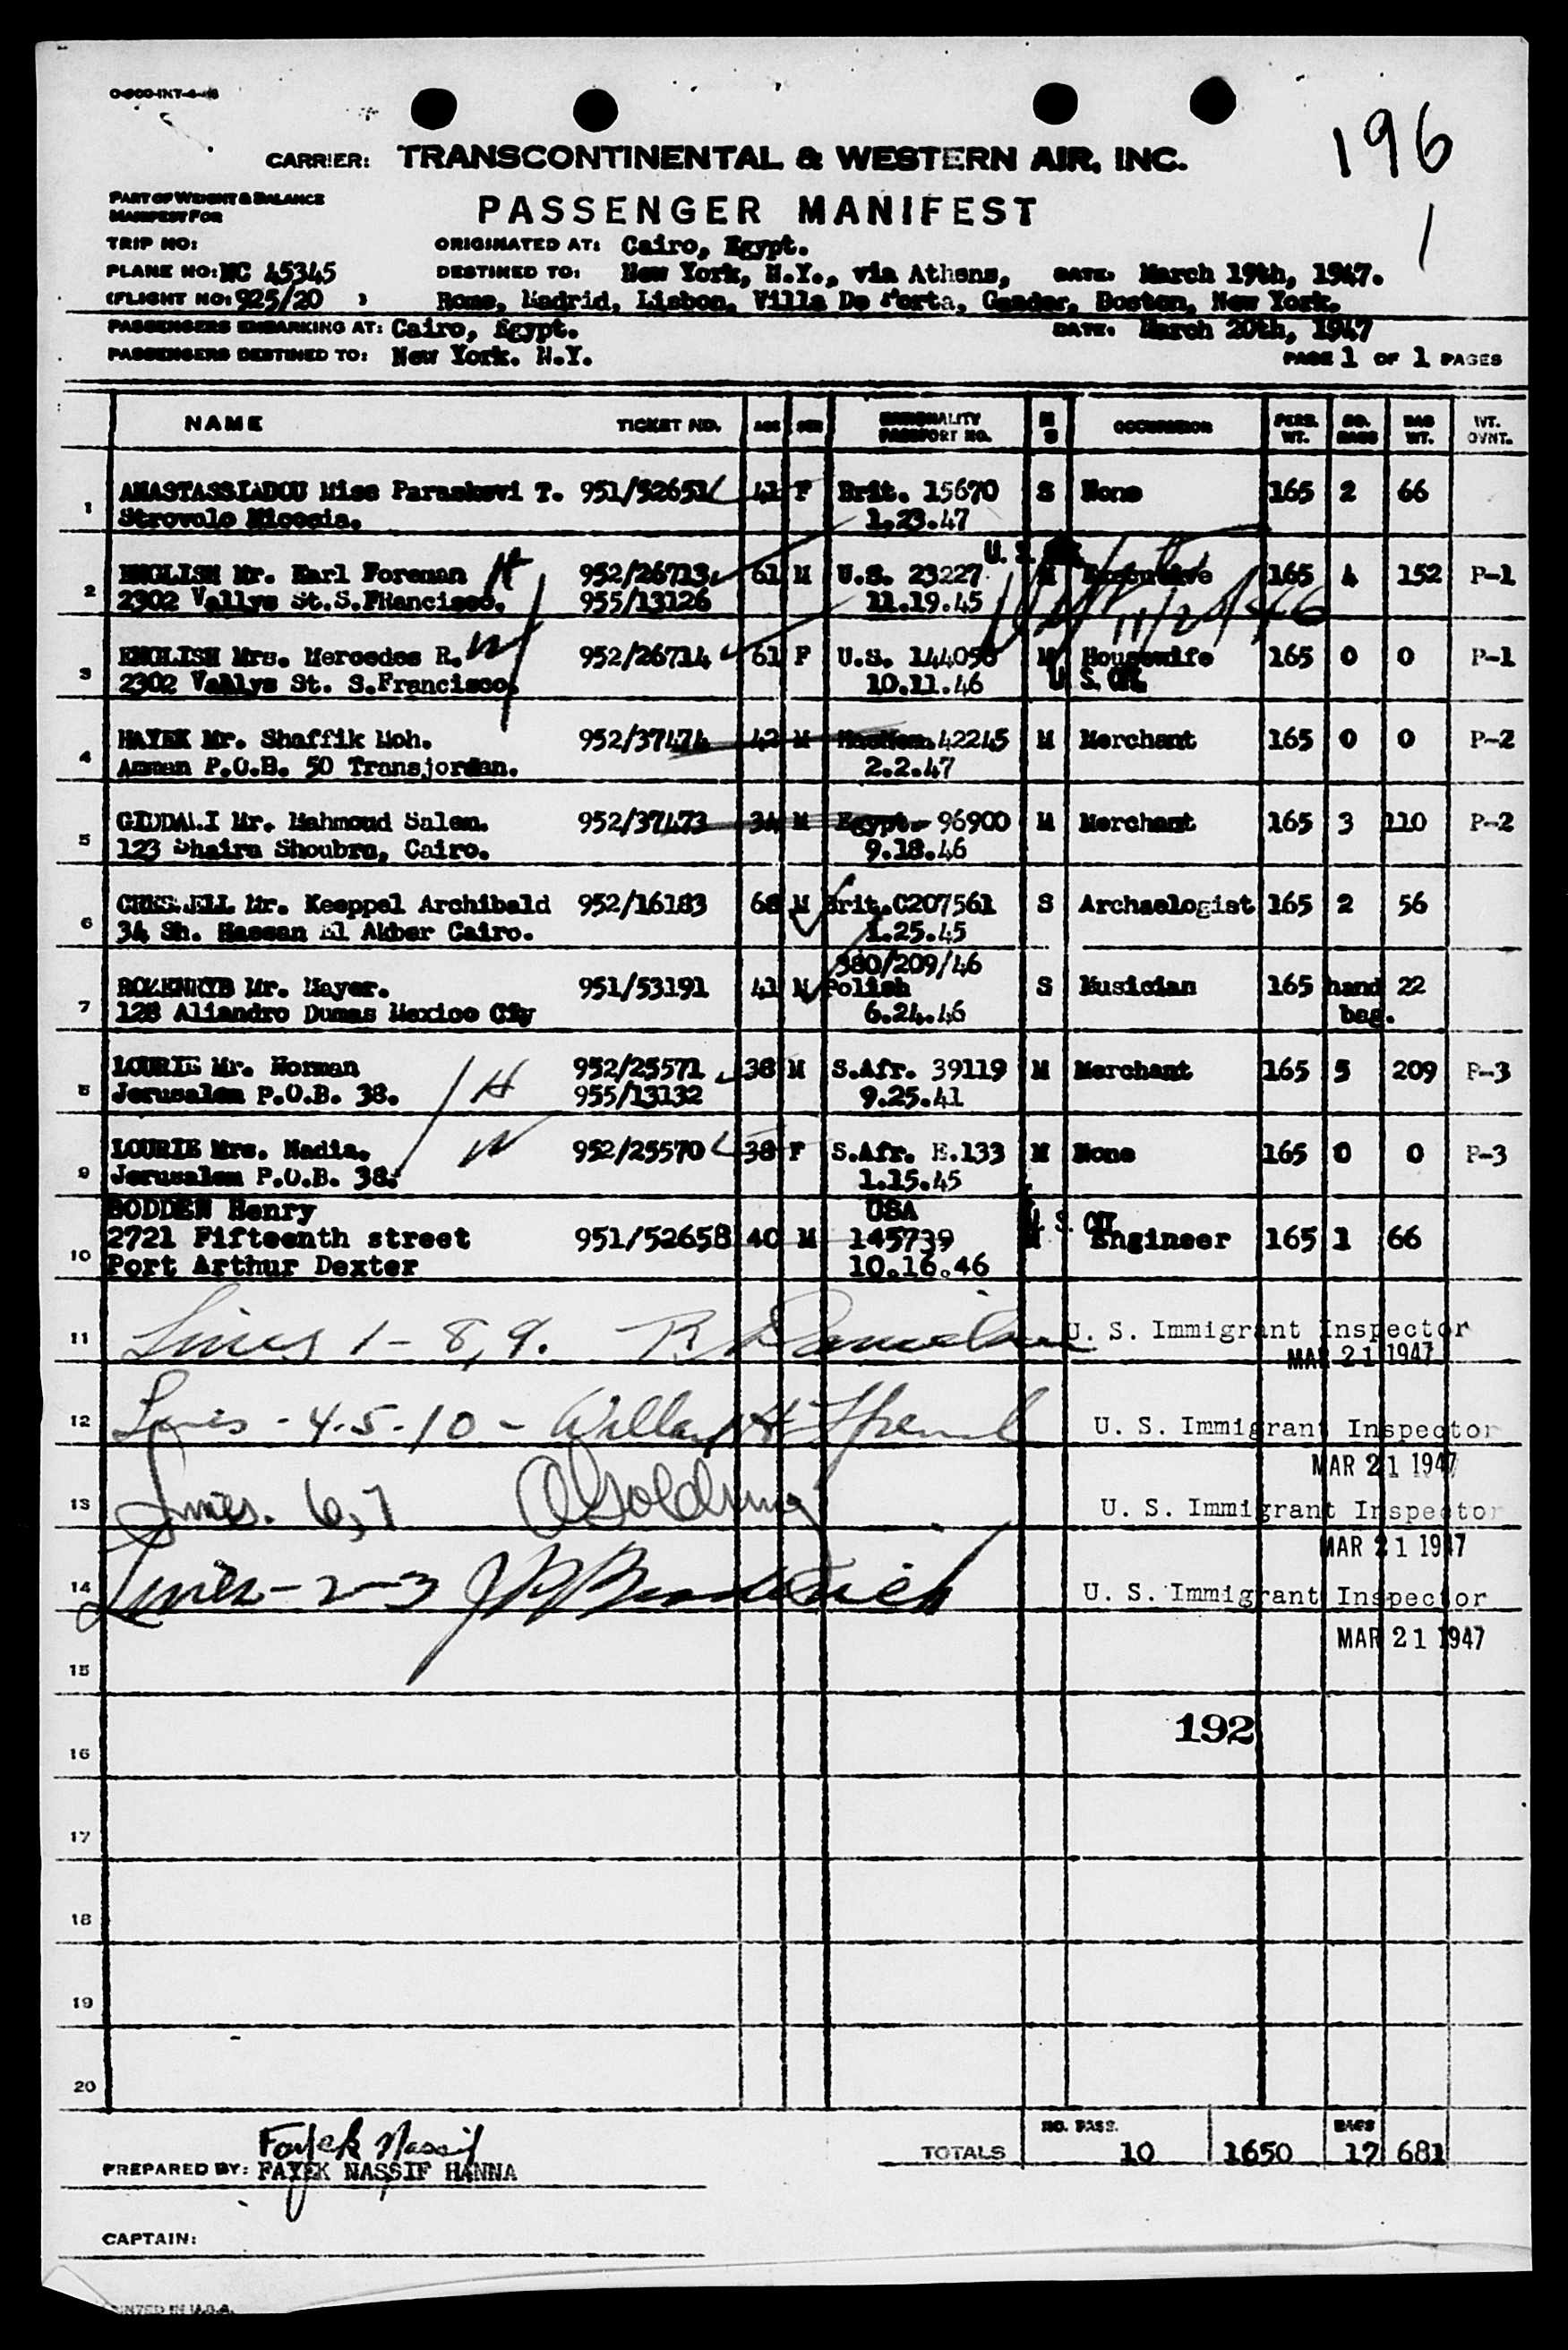 196
1
CARRIER: TRANSCONTINENTAL & WESTERN AIR, INC.
PART OF WEIGHT & BALANCE
MANIFEST FOR
PASSENGER MANIFEST
TRIP NO: ORIGINATED AT: Cairo, Egypt.
PLANE NO: NC 45345 DESTINED TO: New York, N.Y., via Athens, DATE: March 19th, 1947.
(FLIGHT NO: 925/20 ) Rome, Madrid, Lisbon, Villa De Porta, Gander, Boston, New York.
PASSENGERS EMBARKING AT: Cairo, Egypt. DATE: March 20th, 1947
PASSENGERS DESTINED TO: New York. N.Y. PAGE 1 OF 1 PAGES
NAME TICKET NO. AGE SEX NATIONALITY PASSPORT NO. M S OCCUPATION PERS. WT. NO. BAGS BAG WT. WT. OVNT.
1 ANASTASSIADOU Miss Paraskevi T. 951/52651 41 F Brit. 15670 S None 165 2 66
Strovolo Nicosia. 1.23.47
U. S. Cit.
2 ENGLISH Mr. Earl Foreman H 952/26713 61 M U.S. 23227 M Executive 165 4 152 P-1
2302 Vallys St.S.FRancisco. 955/13126 11.19.45
3 ENGLISH Mrs. Mercedes R. W 952/26714 61 F U.S. 144056 M Housewife 165 0 0 P-1
2302 Vallys St. S.Francisco. 10.11.46 U. S. Cit.
4 HAYEK Mr. Shaffik Moh. 952/37474 42 M 42245 M Merchant 165 0 0 P-2
Amman P.O.B. 50 Transjordan. 2.2.47
5 GIDDALI Mr. Mahmoud Salem. 952/37473 34 M Egypt. 96900 M Merchant 165 3 110 P-2
123 Shaira Shoubra, Cairo. 9.18.46
6 CRESWELL Mr. Keeppel Archibald 952/16183 68 M Brit.C207561 S Archaelogist 165 2 56
34 Sh. Hassan El Akber Cairo. 1.25.45
380/209/46
7 ROZENRYB Mr. Mayer. 951/53191 41 M Polish S Musician 165 hand 22
128 Aliandro Dumas Mexico City 6.24.46 bag.
8 LOURIE Mr. Norman H 952/25571 38 M S.Afr. 39119 M Merchant 165 5 209 P-3
Jerusalem P.O.B. 38. 955/13132 9.25.41
9 LOURIE Mrs. Nadia. W 952/25570 38 F S.Afr. E.133 M None 165 0 0 P-3
Jerusalem P.O.B. 38. 1.15.45
BODDEN Henry USA U. S. CIT.
2721 Fifteenth street 951/52658 40 M 145739 M Engineer 165 1 66
10 Port Arthur Dexter 10.16.46
11 Lines 1 - 8, 9. U. S. Immigrant Inspector
MAR 21 1947
12 Lines - 4-5-10 - U. S. Immigrant Inspector
MAR 21 1947
13 Lines. 6,7 U. S. Immigrant Inspector
MAR 21 1947
14 Lines - 2-3 U. S. Immigrant Inspector
MAR 21 1947
15
192
16
17
18
19
20
NO. PASS. BAGS
TOTALS 10 1650 17 681
Fayek Nassif
PREPARED BY: FAYEK NASSIF HANNA
CAPTAIN:
PRINTED IN U.S.A.